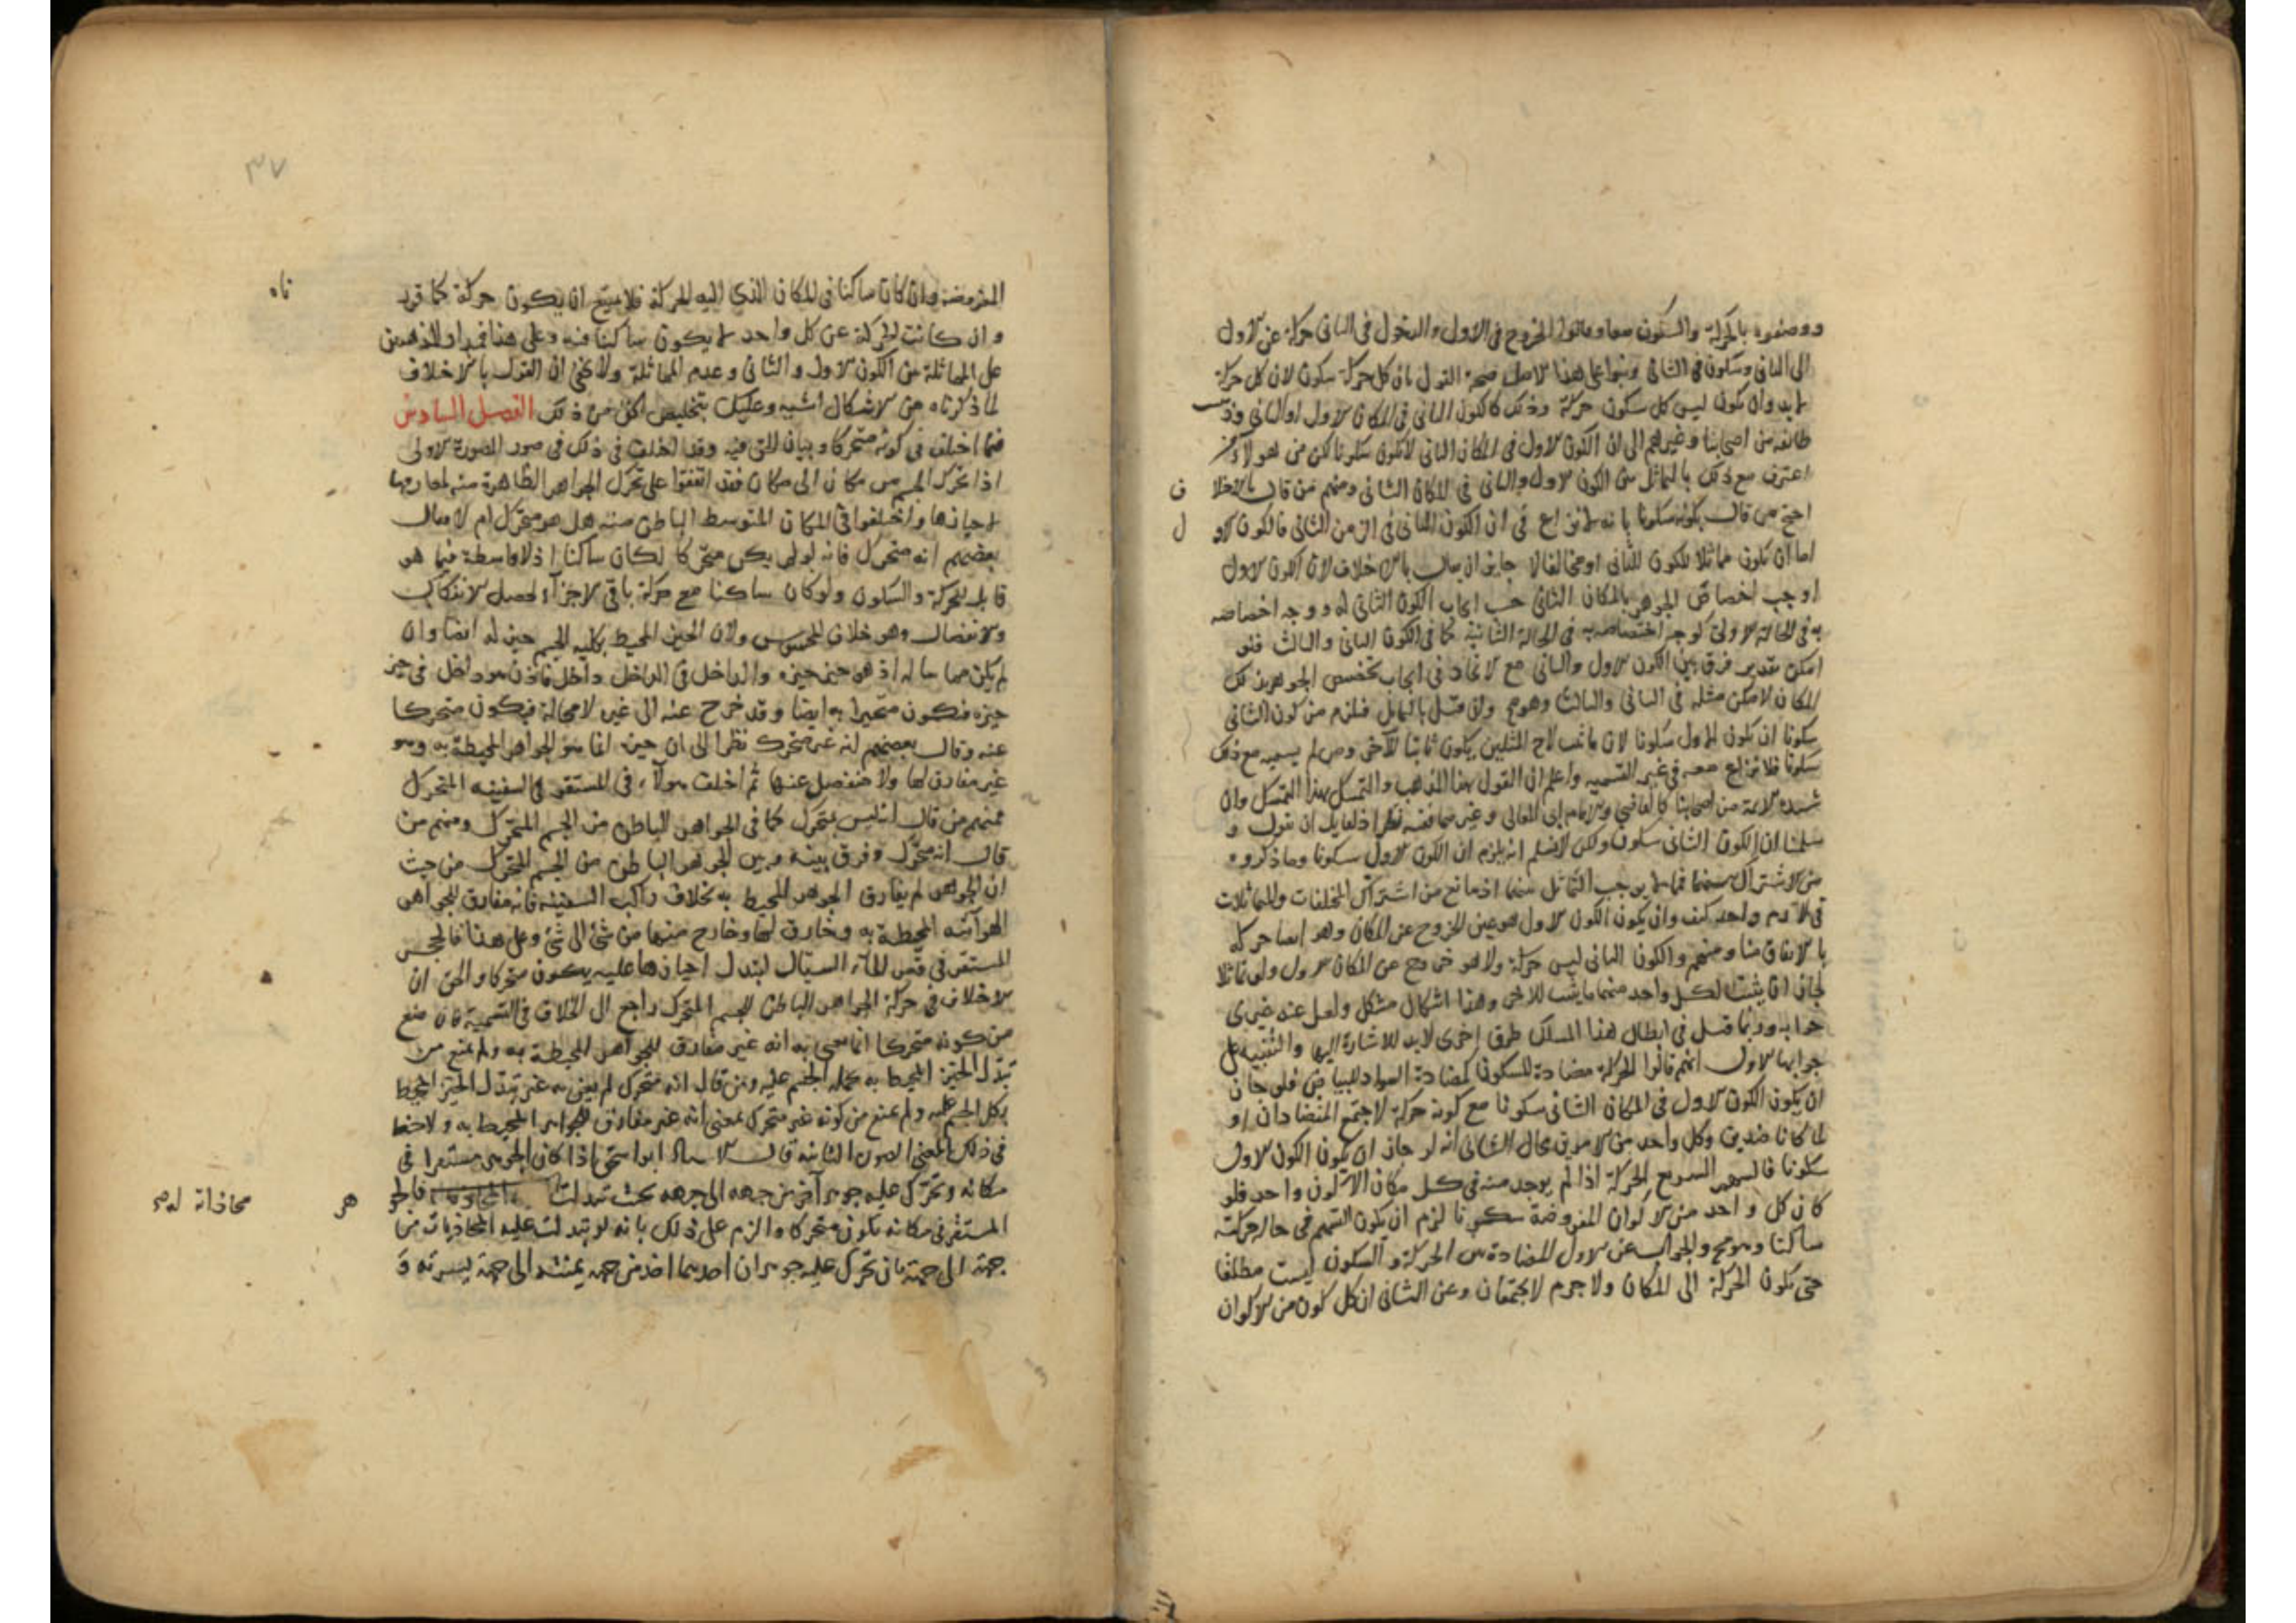 ووصفوه بالحركة والسكون معا وقالوا الخروج في الاول والدخول في الثاني حركة عن الاول
الى الثاني وسكون في الثاني وبنوا على هذا الاصل صحة القول بان كل حركة سكون لان كل حركة
لا بد وان يكون ليس كل سكون حركة وذلك كالكون الثاني في المكان الاول او الثاني وذهب
طائفة من اصحابنا وغيرهم الى ان الكون الاول في المكان الثاني لا يكون سكونا لكن من هولاء من
اعترف مع ذلك بالتماثل بين الكون الاول والثاني في المكان الثاني ومنهم من قال بالاختلاف
احتج من قال بكونه سكونا بانه لا نزاع في ان الكون الثاني في الزمن الثاني فالكون الاول
اما ان يكون مماثلا للكون الثاني او مخالفا لا جائز ان يقال بالاختلاف لان الكون الاول
اوجب اختصاص الجوهر بالمكان الثاني حسب ايجاب الكون الثاني له ووجه اختصاصه
به في الحالة الاولى كوجه اختصاصه به في الحالة الثانية كما في الكون الثاني والثالث فلو
امكن تقدير فرق بين الكون الاول والثاني مع الاتحاد في ايجاب تخصص الجوهر بذلك
المكان لامكن مثله في الثاني والثالث وهو مح وان قيل بالتماثل فيلزم من كون الثاني
سكونا ان يكون الاول سكونا لان ما ثبت لاحد المثلين يكون ثابتا للاخر ومن لم يسميه مع ذلك
سكونا فلا نزاع معه في غير التسمية واعلم ان القول بهذا المذهب والتمسك بهذا المسلك وان
شيده الائمة من اصحابنا كالقاضي والامام ابي المعالي وغيرهما ففيه نظر اذ لقايل ان يقول
سلمنا ان الكون الثاني سكون ولكن لا نسلم انه يلزم ان الكون الاول سكونا وما ذكروه
من الاشتراك بينهما فمما لا يوجب التماثل بينهما اذ لا مانع من اشتراك المختلفات والمتماثلات
في لازم واحد كيف وان يكون الكون الاول هو عين الخروج عن المكان وهو ايضا حركة
بالاتفاق منا ومنهم والكون الثاني ليس حركة ولا هو خروج عن المكان الاول ولو تماثلا
لجاز ان يثبت لكل واحد منهما ما يثبت للاخر وهذا اشكال مشكل ولعل عند غيرى
جوابه وربما قيل في ابطال هذا المسلك طرق اخرى لا بد للاشارة اليها والتنبيه على
جوابها الاول انهم قالوا الحركة مضادة للسكون كمضادة السواد للبياض فلو جاز
ان يكون الكون الاول في المكان الثاني سكونا مع كونه حركة لاجتمع المتضادان او
لما كانا ضدين وكل واحد من الامرين محال الثاني انه لو جاز ان يكون الكون الاول
سكونا فالسهم السريع الحركة اذا لم يوجد منه في كل مكان الا كون واحد فلو
كان كل واحد من الاكوان المفروضة سكونا لزم ان يكون السهم في حال حركته
ساكنا وهو مح والجواب عن الاول المضادة بين الحركة والسكون ليست مطلقا
حتى يكون الحركة الى المكان ولا جرم لا يجتمعان وعن الثاني ان كل كون من الاكوان
٣٧
المفروضة وان كان ساكنا في المكان الذي اليه الحركة فلا يمتنع ان يكون حركة كما قررناه
وان كانت الحركة عن كل واحد لا يكون ساكنا فيه وعلى هذا فمدار المذهبين
على المماثلة بين الكون الاول والثاني وعدم المماثلة ولا يخفى ان القول بالاختلاف
لما ذكرناه من الاشكال اشبه وعليك بتخليص الحق من ذلك الفصل السادس
فيما اختلف في كونه متحركا وبيان الحق فيه وقد اختلف في ذلك في صور الصورة الاولى
اذا تحرك الجسم من مكان الى مكان فقد اتفقوا على تحرك الجواهر الظاهرة منه لمفارقتها
احيازها واختلفوا في المكان المتوسط الباطن منه هل هو متحرك ام لا فقال
بعضهم انه متحرك فانه لو لم يكن متحركا لكان ساكنا اذ لا واسطة فيما هو
قابل للحركة والسكون ولو كان ساكنا مع حركة باقي الاجزاء لحصل الانفكاك
والانفصال وهو خلاف المحسوس ولان الحيز المحيط بكلية الجسم حيز له ايضا وان
لم يكن مماسا له اذ هو حيز حيزه والداخل في الداخل داخل فاذن هو داخل في حيز
حيزه فيكون متحيزا به ايضا وقد خرج عنه الى غيره لا محالة فيكون متحركا
عنه وقال بعضهم انه غير متحرك نظرا الى ان حيزه انما هو الجواهر المحيطة به وهو
غير مفارق لها ولا منفصل عنها ثم اختلف هولاء في المستقر في السفينة المتحرك
فمنهم من قال انه ليس بمتحرك كما في الجواهر الباطن من الجسم المتحرك ومنهم من
قال انه متحرك وفرق بينه وبين الجوهر الباطن من الجسم المتحرك من حيث
ان الجوهر لم يفارق الجوهر المحيط به بخلاف راكب السفينة فانه مفارق للجواهر
الهوائية المحيطة به وخارق لها وخارج منها من شئ الى شئ وعلى هذا فالحجر
المستقر في قعر الماء السيال لتبدل احيازها عليه يكون متحركا والحق ان
الاختلاف في حركة الجواهر الباطن للجسم المتحرك راجع الى الخلاف في التسمية فان منع
من كونه متحركا انما يعني به انه غير مفارق للجواهر المحيطة به ولم يمنع من
تبدل الحيز المحيط به بجملة الجسم عليه ومن قال انه متحرك لم يعني به غير تبدل الحيز المحيط
بكل الجسم عليه ولم يمنع من كونه غير متحرك بمعنى انه غير مفارق للجواهر المحيط به ولا خفا
في ذلك المعنى الصورة الثانية قال الاستاذ ابو اسحق اذا كان الجوهر مستقرا في
مكانه وتحرك عليه جوهر آخر من جهة الى جهة بحيث تبدلت محاذاته له فالجوهر
المستقر في مكانه يكون متحركا والزم على ذلك بانه لو تبدلت عليه المحاذيات من
جهة الى جهة بان تحرك عليه جوهران احدهما اخذ من جهة يمنته الى جهة يسرته و